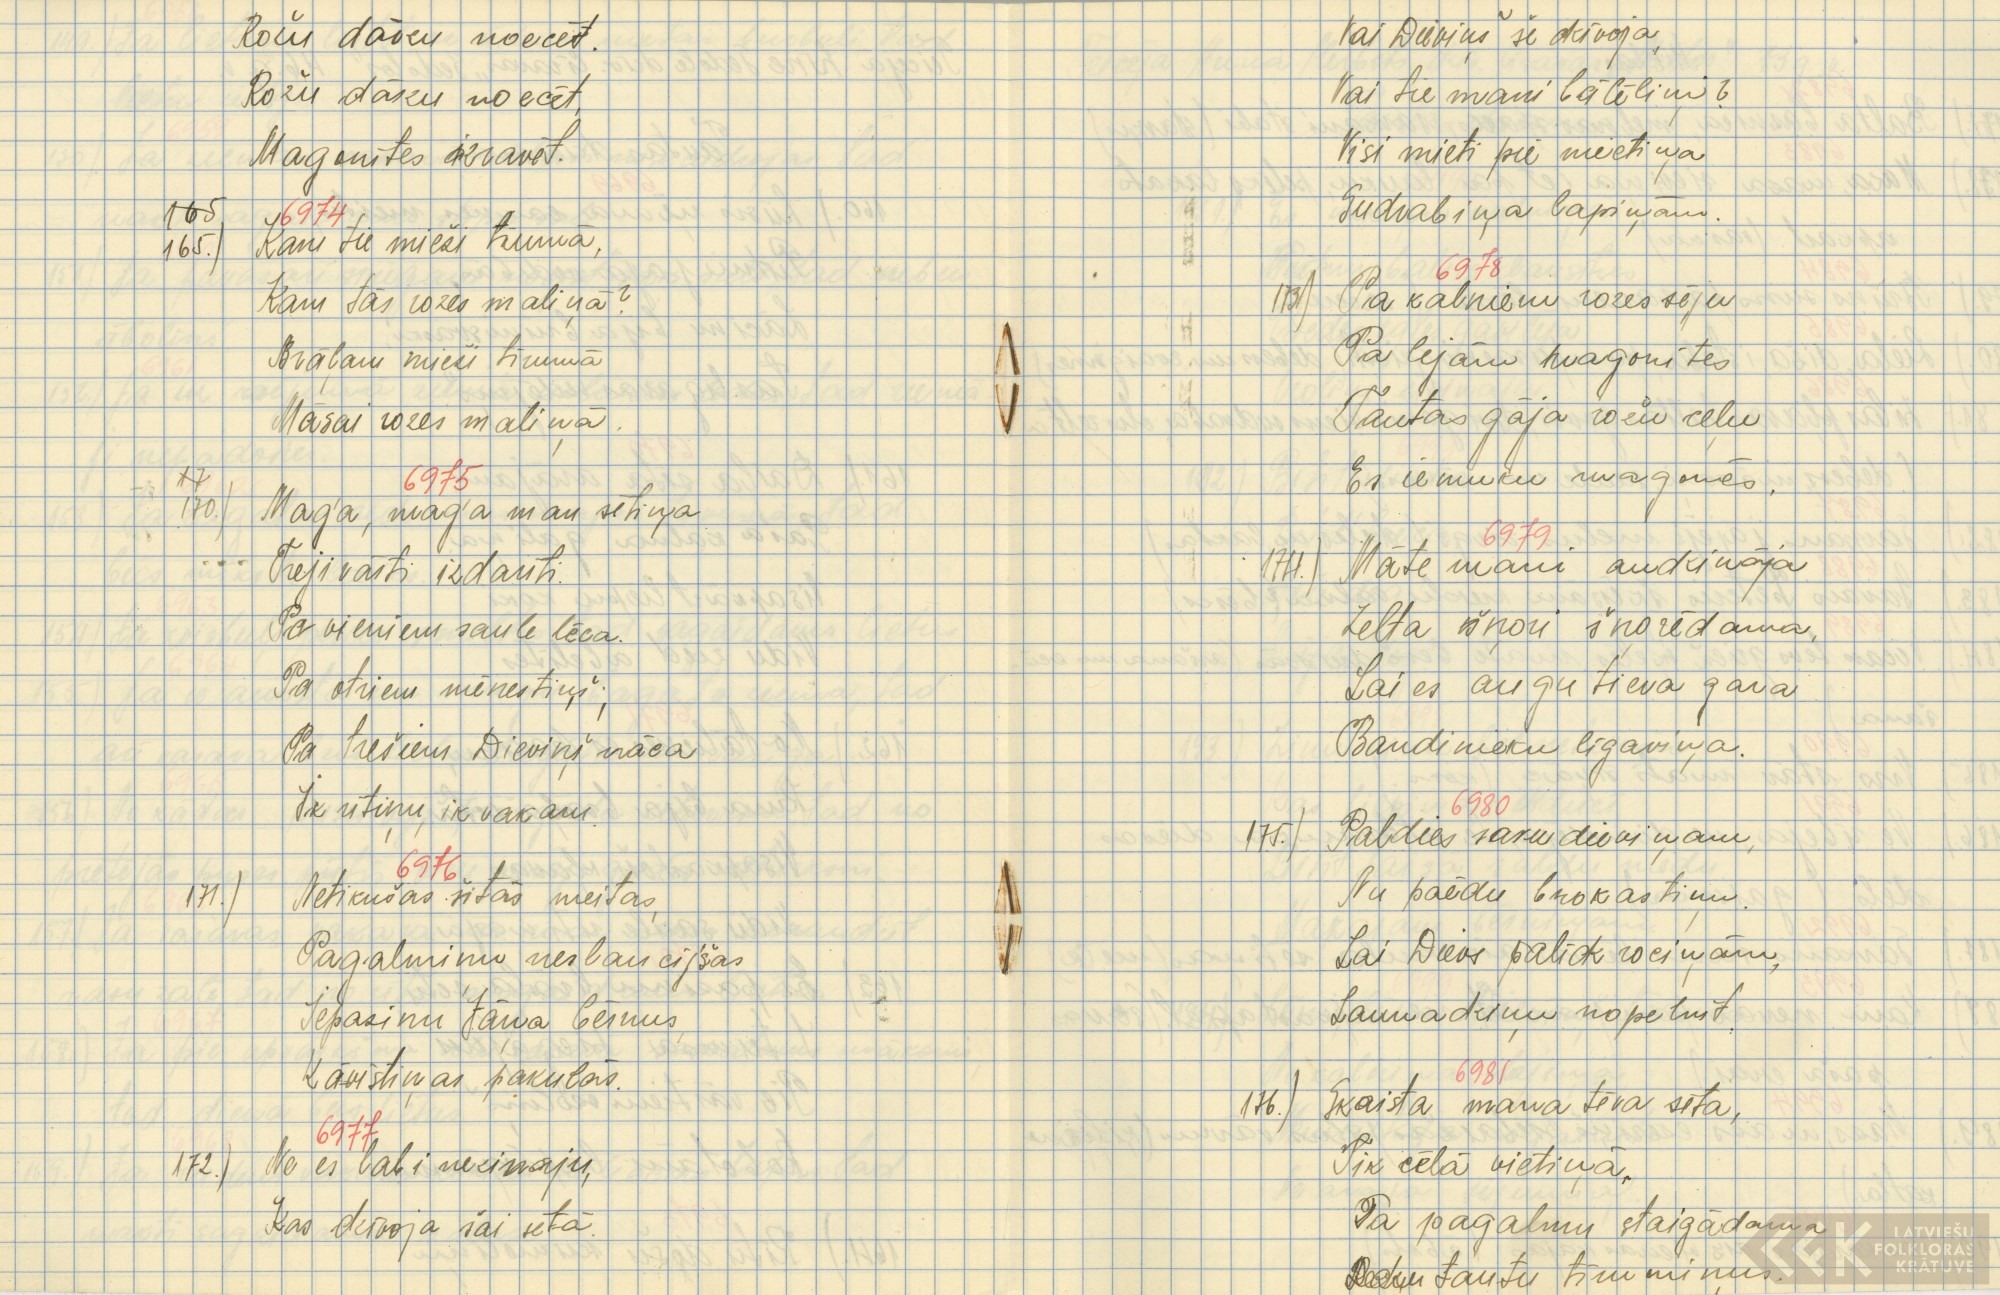 Rožu dārzu noecēt.
Rožu dārzu noecēt,
Magonītes izravēt.
165
6974
165.) Kam tie mieži tīrumā,
Kam tās rozes maliņā?
Brāļam mieži tīrumā
Māsai rozes maliņā.
17
6975
170.) Maga, maga man sētiņa
Trejivārti izdarīti.
Pa vieniem saule lēca.
Pa otriem mēnestiņš;
Pa trešiem Dieviņš nāca
Ik rītiņu, ik vakaru.
6976
171.) Netikušas šitās meitas,
Pagalmiņu neslaucijšas
Iepazinu Jāņa bērnus,
Kāvistiņas pakulās.
6977
172.) Ne es labi nezinaju,
Kas dzīvoja šai sētā.
Vai Dieviņš še dzīvoja,
Vai tie mani bālēliņi?
Visi mieti pie mietiņa
Sudrabiņa lapiņām.
6978
173.) Pa kalniem rozes sēju
Pa lejām magonītes
Tautas gāja rožu ceļu
Es iemuku magonēs.
6979
174.) Māte mani audzināja
Zelta šņori šņorēdama,
Lai es augu tieva gara
Bandinieku līgaviņa.
6980
175.) Paldies saku dieviņam,
Nu paēdu brokastiņu.
Lai Dievs palīdz rociņām,
Launadziņu nopelnīt.
6981
176.) Skaista mana tēva sēta,
Tik cēlā vietiņā,
Pa pagalmu staigādama
tautu tīrumiņus.
LATVIEŠU
FOLKLORAS
KRĀTUVE